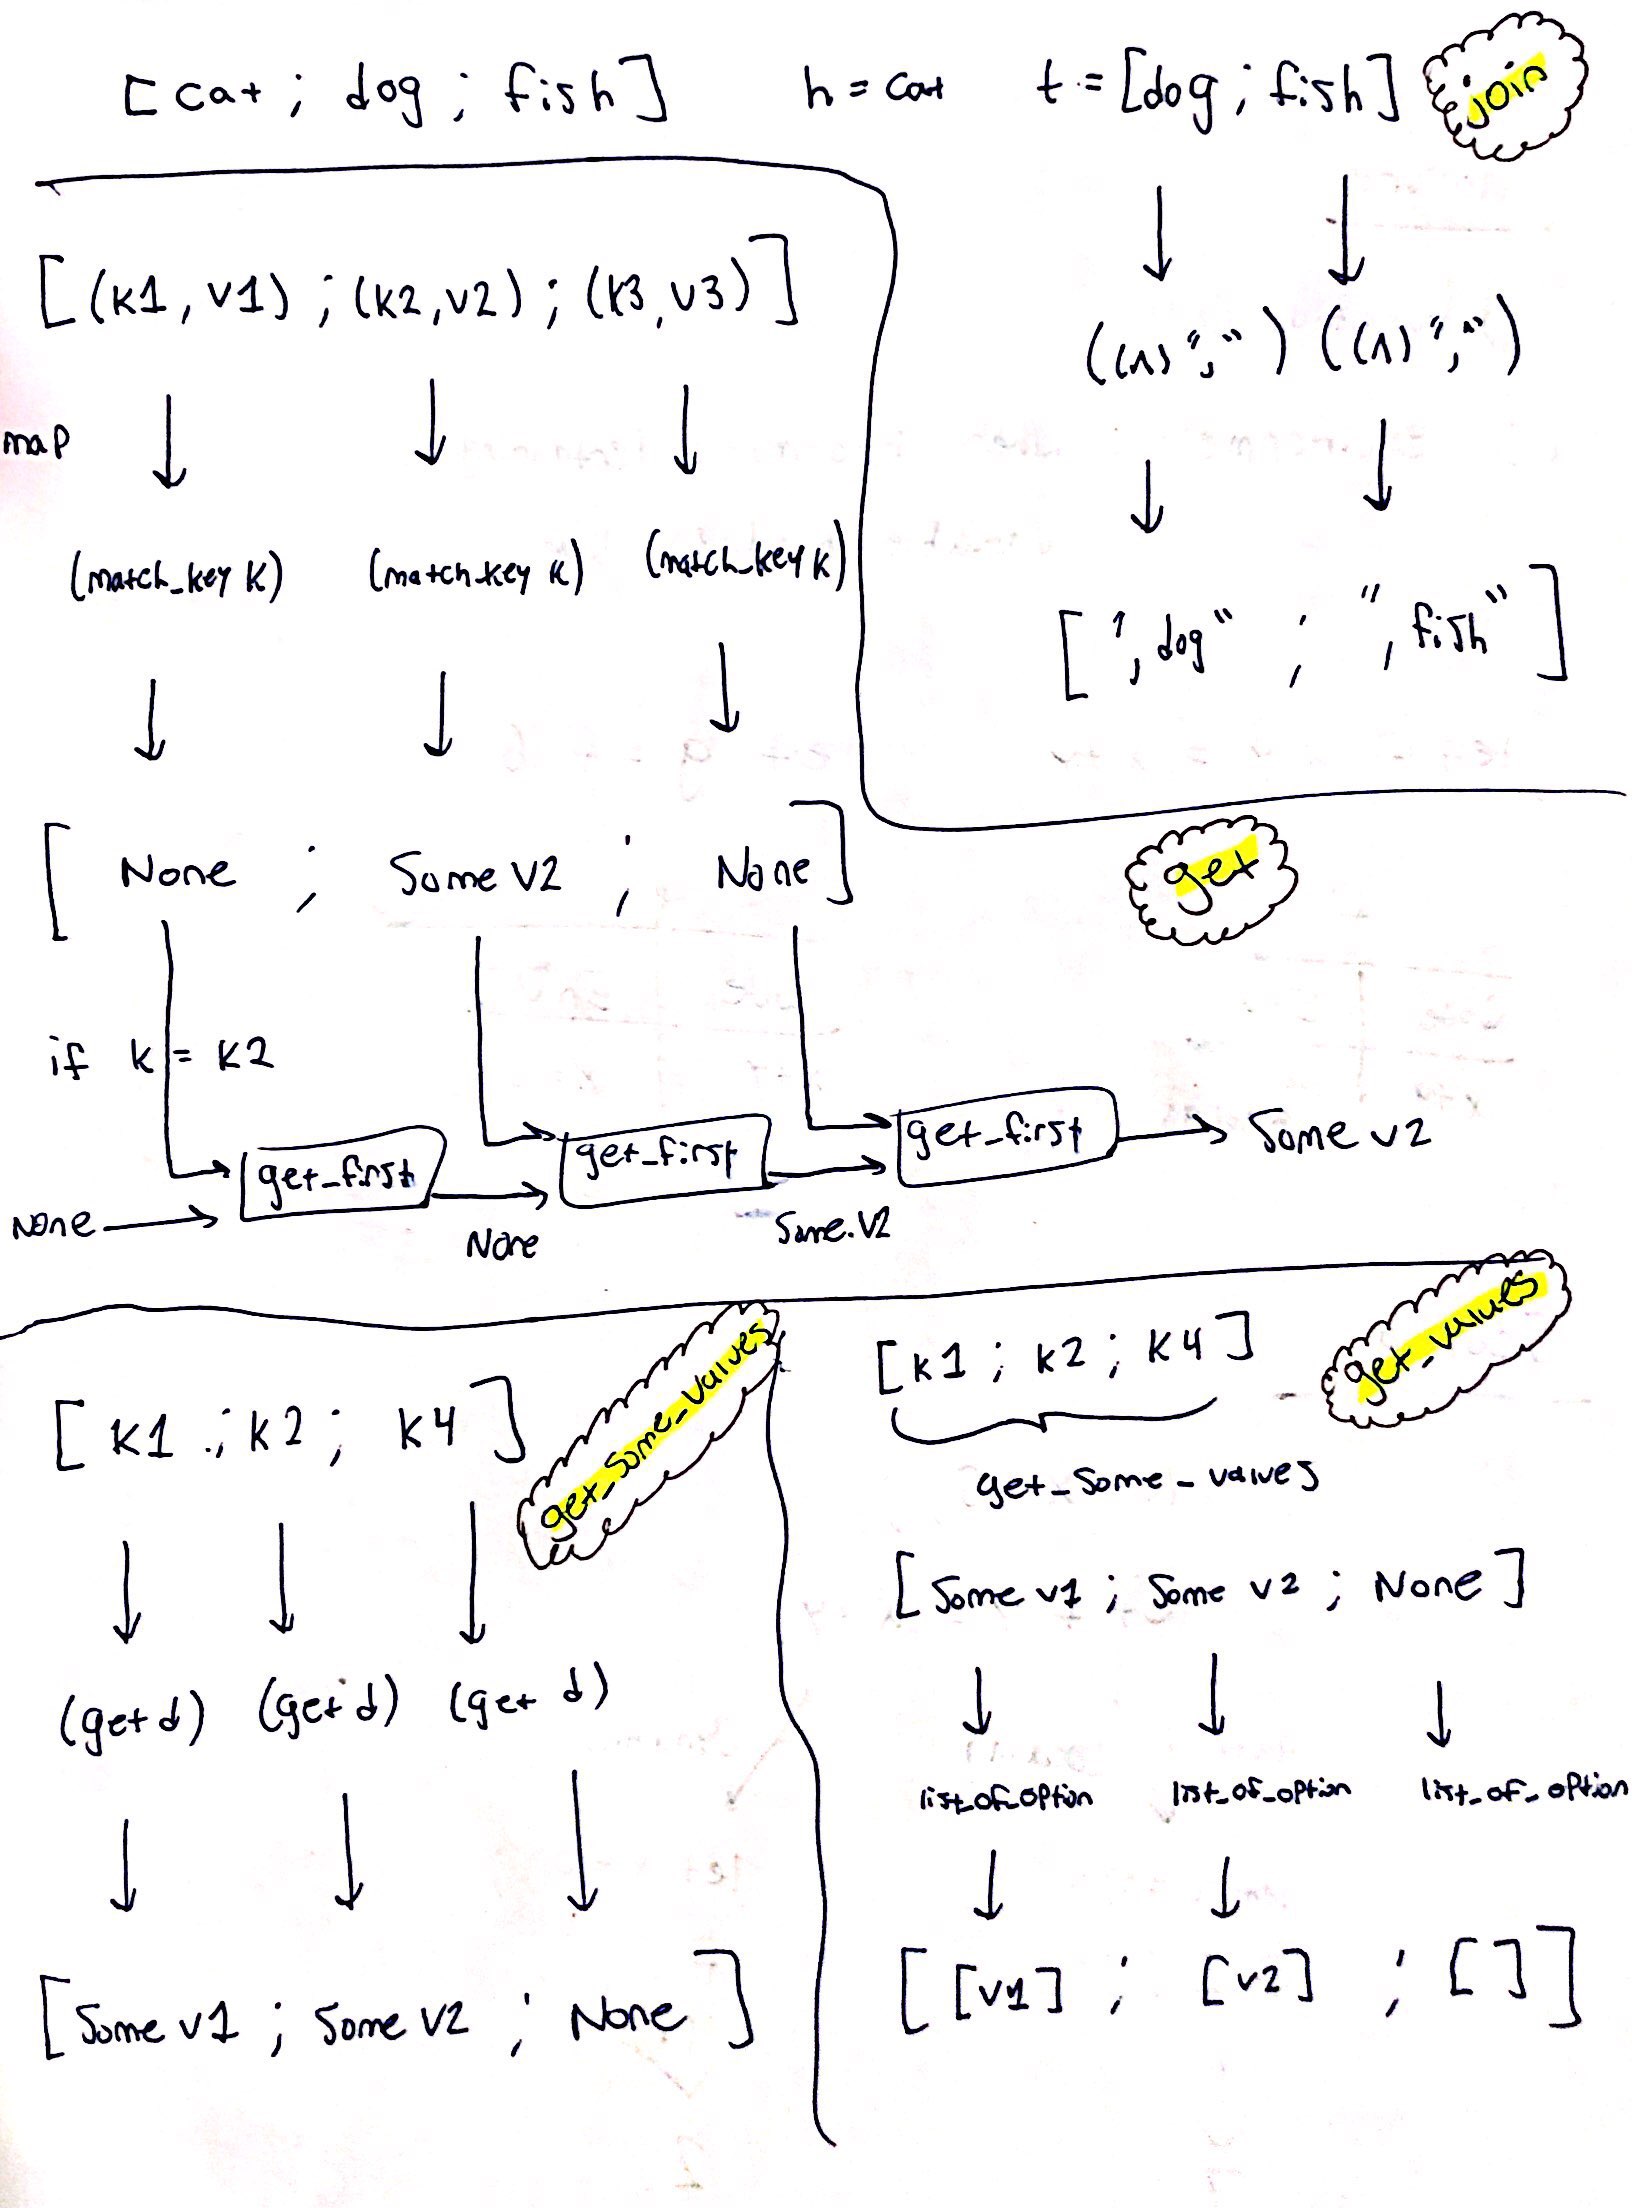 [cat ; dog ; fish] h = cat t = [dog ; fish] join
((^) "," ) ((^) "," )
[ ",dog" ; ",fish" ]
[(k1, v1) ; (k2, v2) ; (k3, v3)]
map
(match_key k) (match_key k) (match_key k)
[ None ; Some v2 ; None ]
get
if k = k2
get_first get_first get_first Some v2
None None Some v2
get_some_values
[ k1 ; k2 ; k4 ]
(get d) (get d) (get d)
[Some v1 ; Some v2 ; None ]
get_values
[k1 ; k2 ; k4]
get_some_values
[Some v1 ; Some v2 ; None ]
list_of_option list_of_option list_of_option
[ [v1] ; [v2] ; [ ] ]